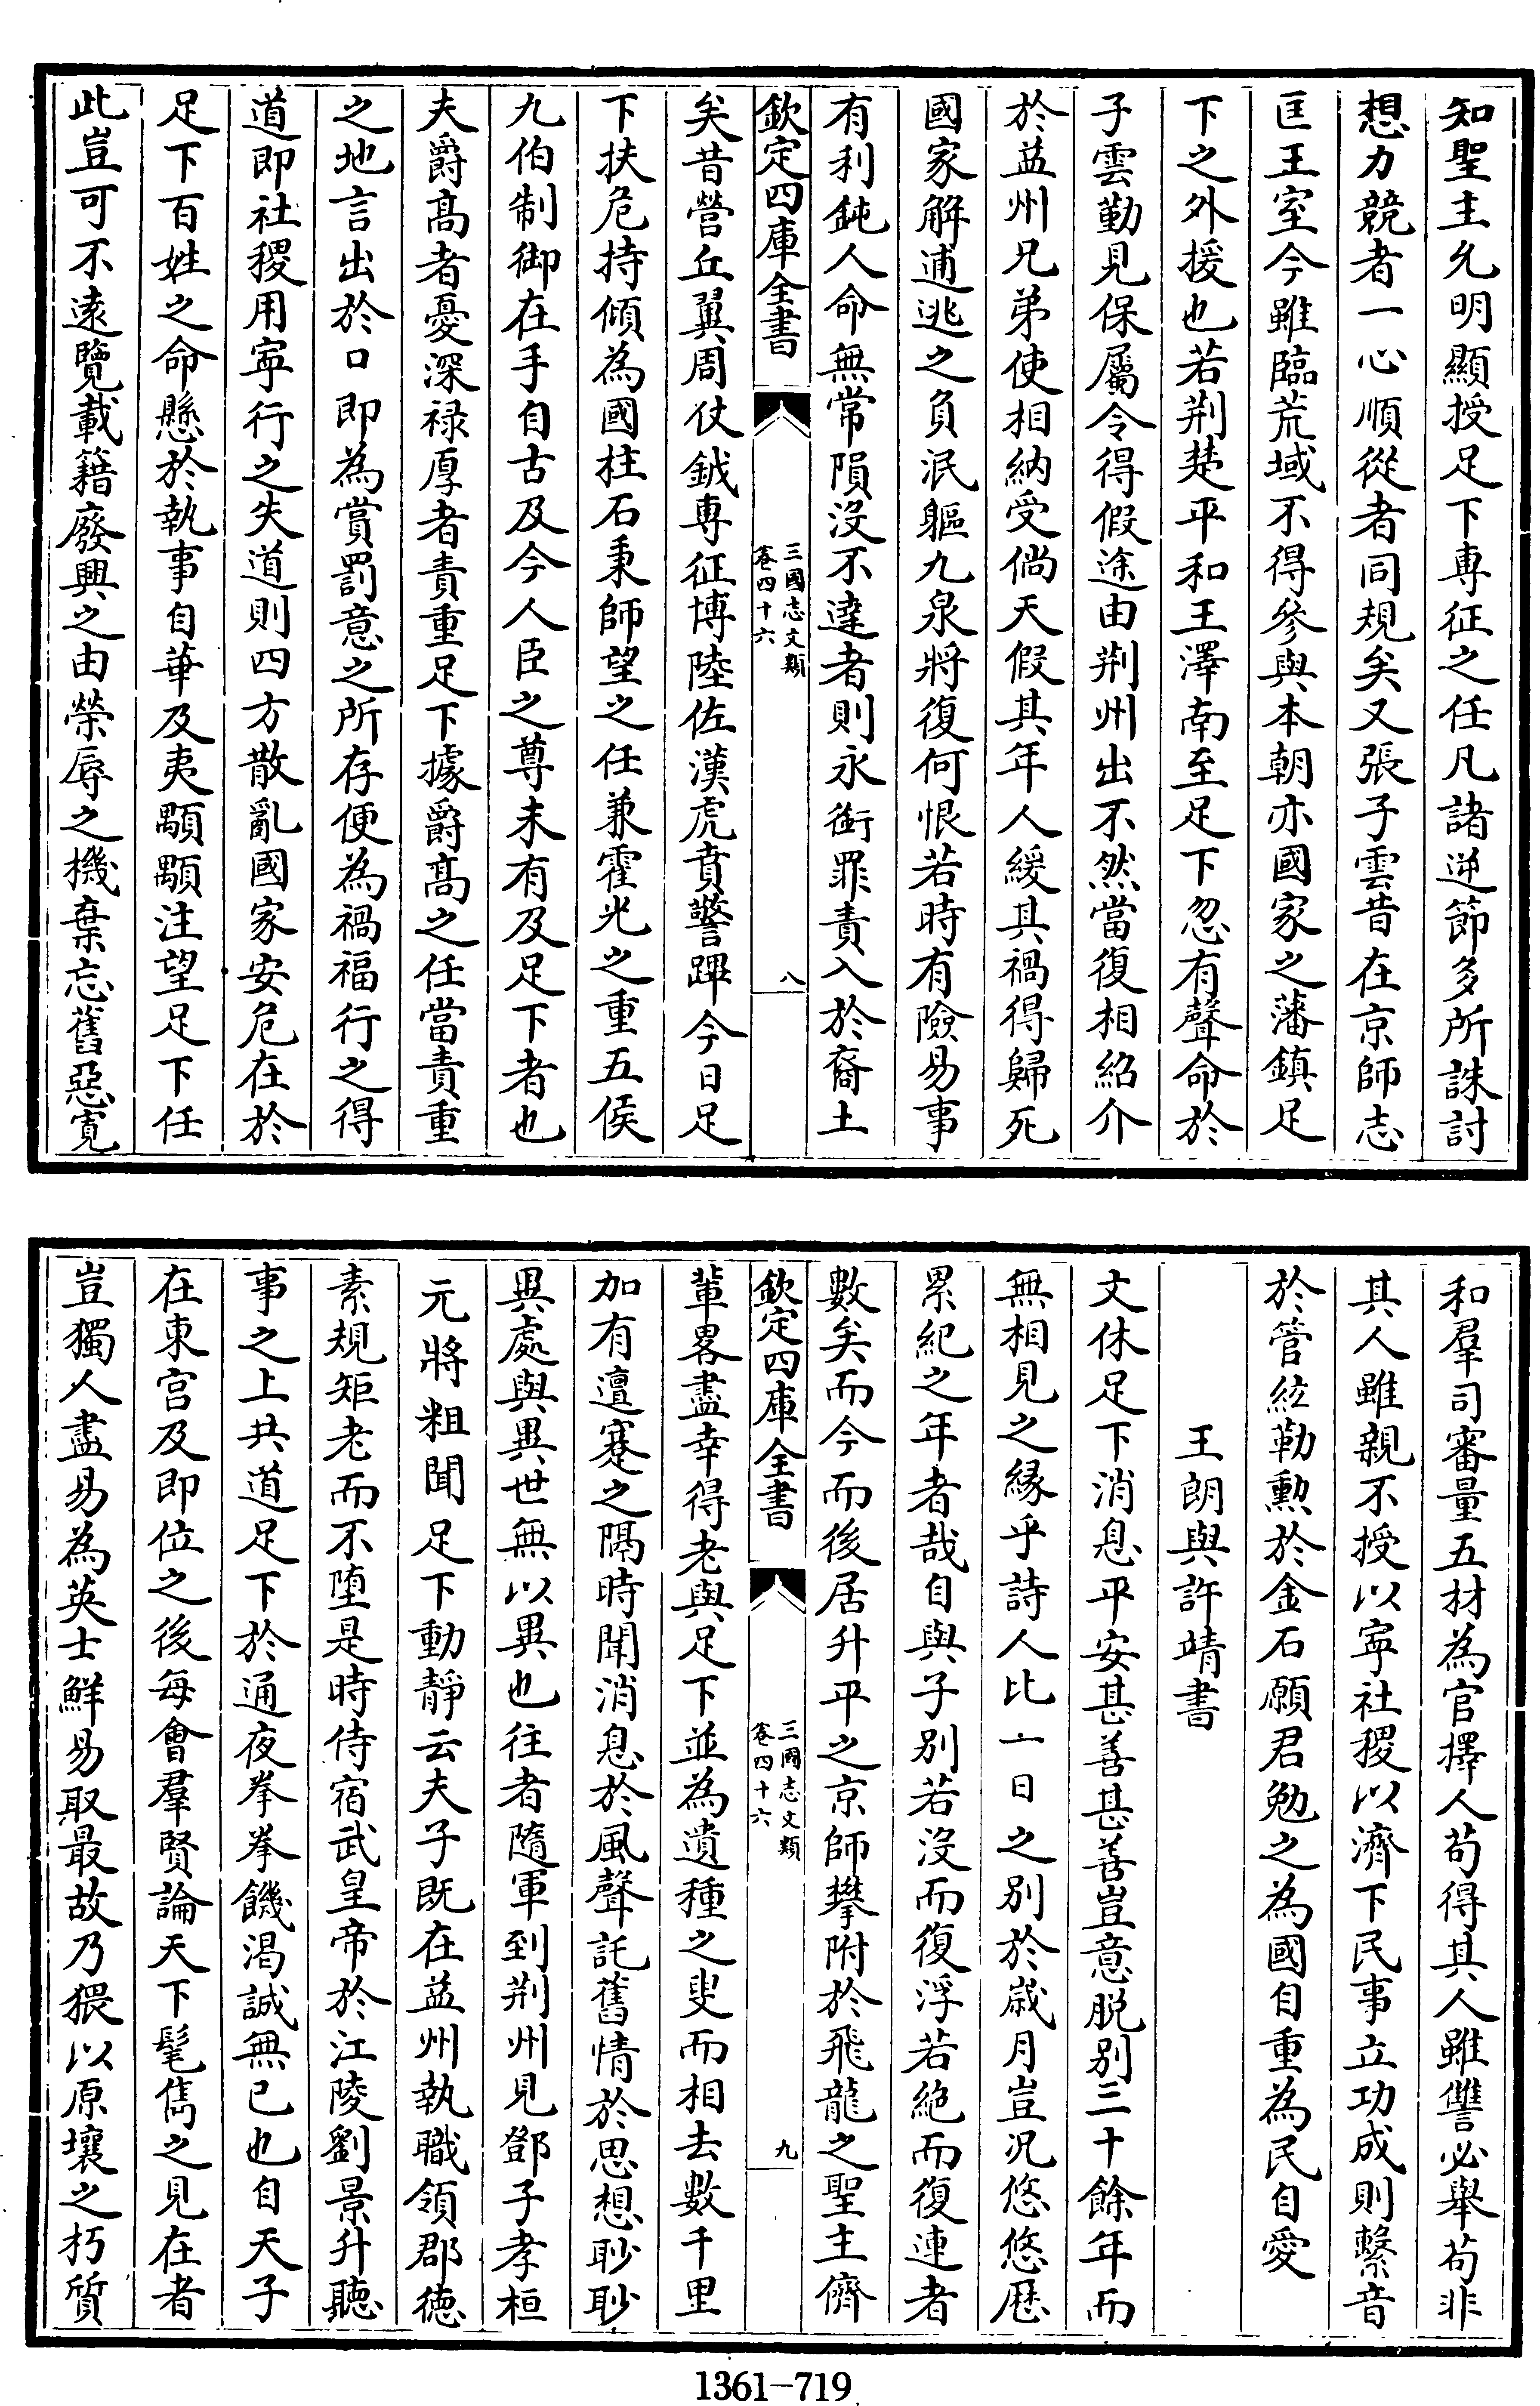 知聖主允明顯授足下專征之任凡諸逆節多所誅討
想力競者一心順從者同規矣又張子雲昔在京師志
匡王室今雖臨荒域不得參與本朝亦國家之藩鎮足
下之外援也若荆楚平和王澤南至足下忽有聲命於
子雲勤見保屬令得假途由荆州出不然當復相紹介
於益州兄弟使相納受倘天假其年人緩其禍得歸死
國家解逋逃之負泯軀九泉將復何恨若時有險易事
有利鈍人命無常隕沒不達者則永銜罪責入於裔土
欽定四庫全書
三國志文類
卷四十六
八
矣昔營丘翼周仗鉞專征博陸佐漢虎賁警蹕今日足
下扶危持傾為國柱石秉師望之任兼霍光之重五侯
九伯制御在手自古及今人臣之尊未有及足下者也
夫爵髙者憂深禄厚者責重足下據爵髙之任當責重
之地言出於口即為賞罰意之所存便為禍福行之得
道即社稷用寧行之失道則四方散亂國家安危在於
足下百姓之命懸於執事自華及夷顒顒注望足下任
此豈可不逺覽載籍廢興之由榮辱之機棄忘舊惡寛
和羣司審量五材為官擇人茍得其人雖讐必舉茍非
其人雖親不授以寧社稷以濟下民事立功成則繫音
於管絃勒勲於金石願君勉之為國自重為民自愛
王朗與許靖書
文休足下消息平安甚善甚善豈意脱别三十餘年而
無相見之縁乎詩人比一日之别於歳月豈况悠悠歴
累紀之年者哉自與子别若沒而復浮若絶而復連者
數矣而今而後居升平之京師攀附於飛龍之聖主儕
欽定四庫全書
三國志文類
卷四十六
九
輩畧盡幸得老與足下並為遺種之叟而相去數千里
加有邅蹇之隔時聞消息於風聲託舊情於思想眇眇
異處與異世無以異也往者隨軍到荆州見鄧子孝桓
元將粗聞足下動靜云夫子既在益州執職領郡徳
素規矩老而不墮是時侍宿武皇帝於江陵劉景升聽
事之上共道足下於通夜拳拳饑渇誠無已也自天子
在東宫及即位之後每會羣賢論天下髦雋之見在者
豈獨人盡易為英士鮮易取最故乃猥以原壤之朽質
1361-719